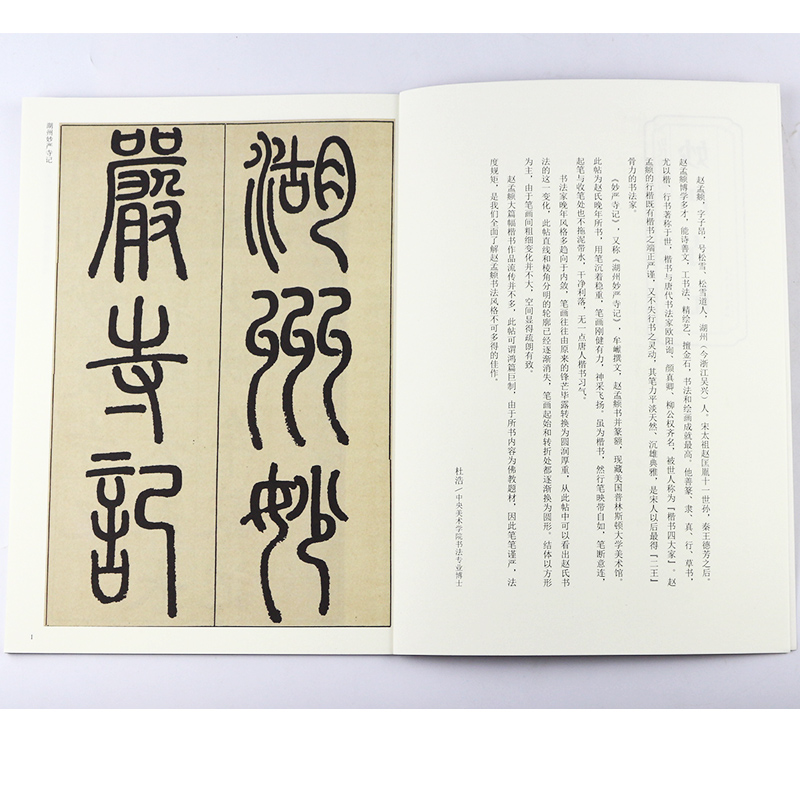 赵孟頫，字子昂，号松雪，松雪道人，湖州（今浙江吴兴）人，宋太祖赵匡胤十一世孙，秦王德芳之后。
赵孟頫博学多才，能诗善文，工书法，精绘艺，擅金石，书法和绘画成就最高。他善篆、隶、真、行、草书，
尤以楷、行书著称于世，楷书与唐代书法家欧阳询、颜真卿、柳公权齐名，被世人称为「楷书四大家」。赵
孟頫的行楷既有楷书之端正严谨，又不失行书之灵动，其笔力平淡天然、沉雄典雅，是宋人以后最得「二王」
骨力的书法家。
《妙严寺记》，又称《湖州妙严寺记》，牟巘撰文，赵孟頫书并篆额，现藏美国普林斯顿大学美术馆。
此帖为赵氏晚年所书，用笔沉着稳重，笔画刚健有力，神采飞扬。虽为楷书，然行笔映带自如，笔断意连，
起笔与收笔处也不拖泥带水，干净利落，无一点唐人楷书习气。
书法家晚年风格多趋向于内敛，笔画往往由原来的锋芒毕露转换为圆润厚重，从此帖中可以看出赵氏书
法的这一变化，此帖直线和棱角分明的轮廓已经逐渐消失，笔画起始和转折处都逐渐换为圆形。结体以方形
为主，由于笔画间粗细变化并不大，空间显得疏朗有致。
赵孟頫大篇幅楷书作品流传并不多，此帖可谓鸿篇巨制，由于所书内容为佛教题材，因此笔笔谨严，法
度规矩，是我们全面了解赵孟頫书法风格不可多得的佳作。
杜浩／中央美术学院书法专业博士
湖州妙
嚴寺記
湖州妙严寺记
1